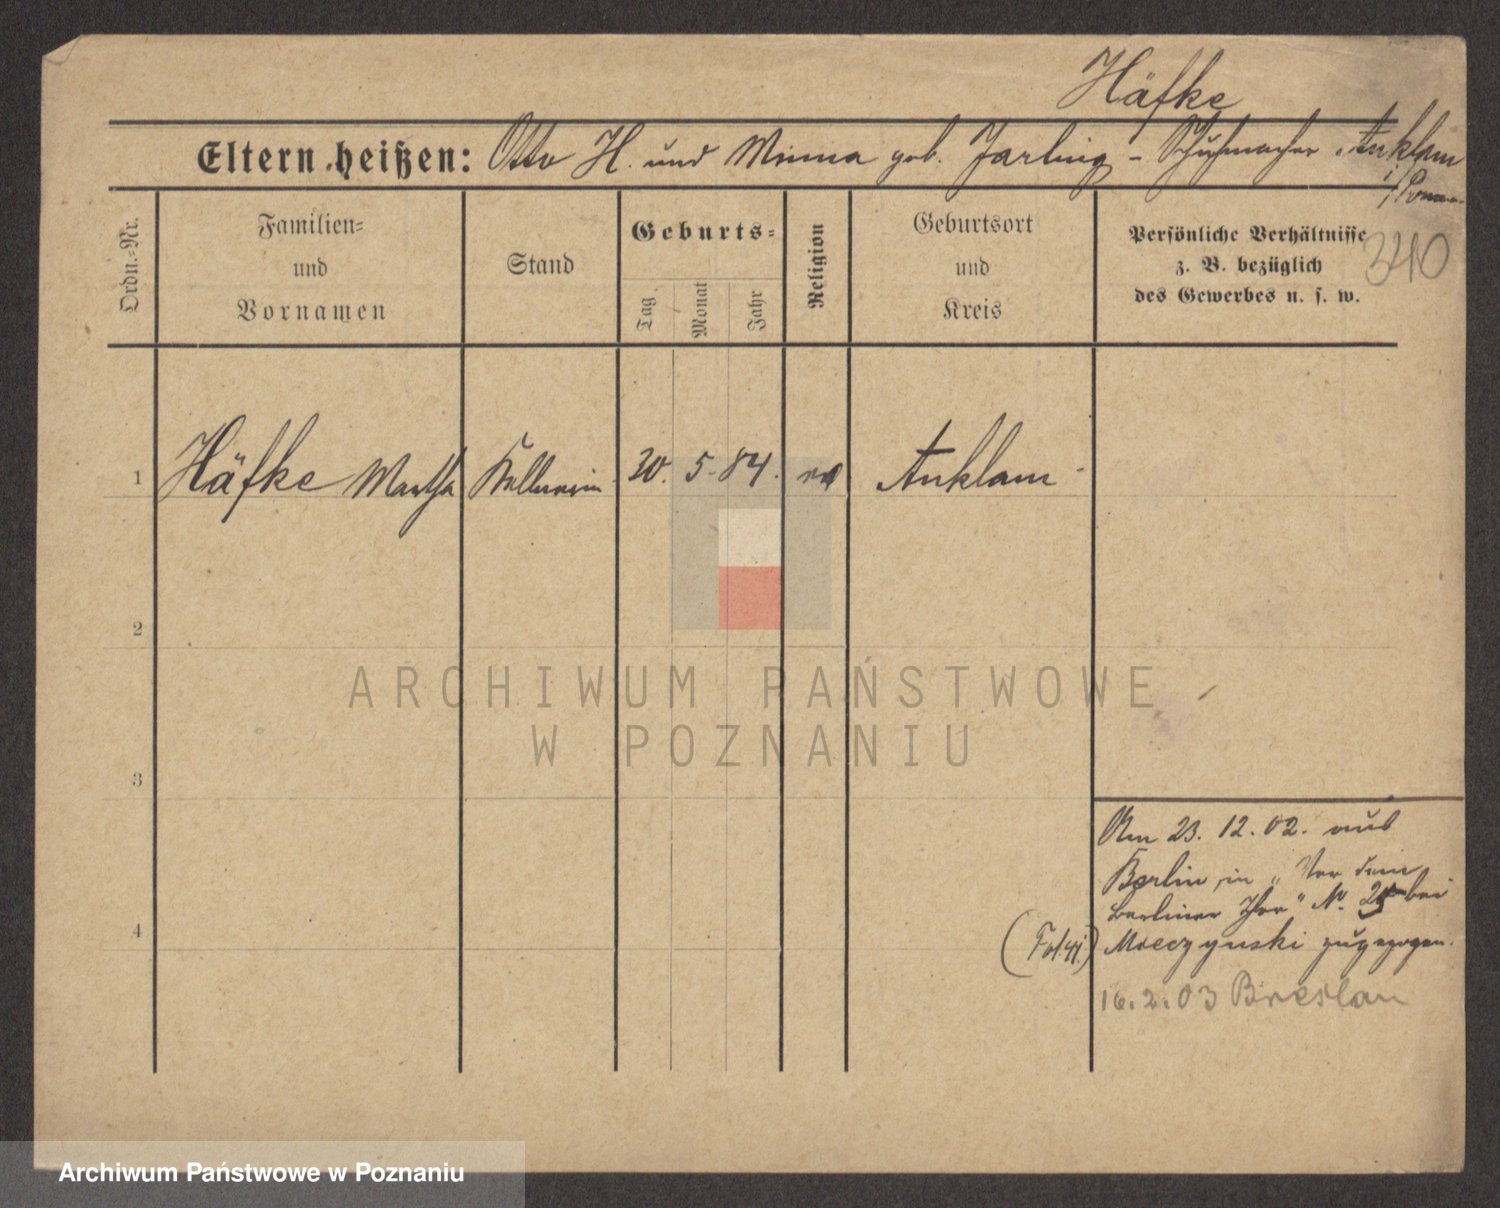 Häfke
Eltern heißen: Otto H. und Minna geb. Jarling - Schuhmacher Anklam
i/Pomm.
Ordn.-Nr.
Familien-
und
Vornamen
Stand
Geburts-
Tag
Monat
Jahr
Religion
Geburtsort
und
Kreis
Persönliche Verhältnisse
z. B. bezüglich
des Gewerbes u. s. w.
340
1 Häfke Martha Kellnerin 30. 5. 84. Anklam
2
3
4
Am 23. 12. 02. aus
Berlin, in „Vor dem
Berliner Thor" No. bei
zugezogen.
16.2.03 Breslau
ARCHIWUM PAŃSTWOWE
W POZNANIU
Archiwum Państwowe w Poznaniu